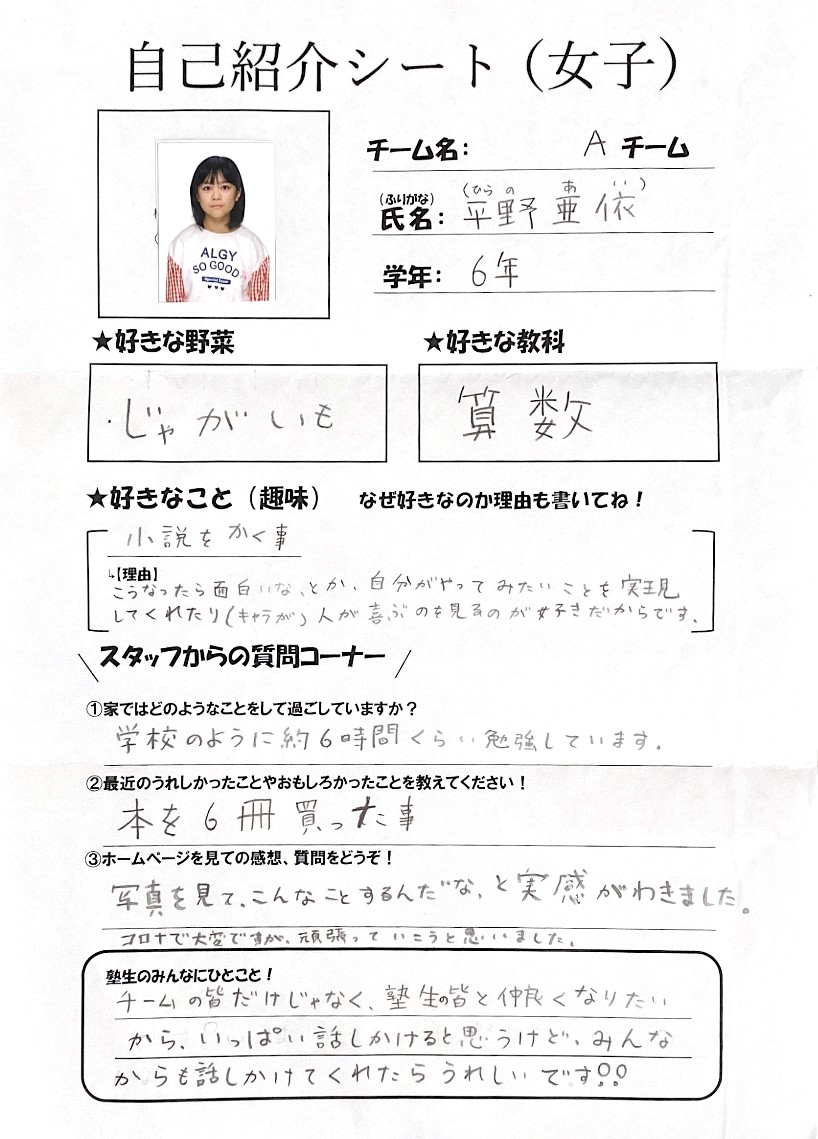 自己紹介シート（女子）
チーム名： A チーム
（ふりがな） （ひらの あい）
氏名： 平野 亜依
学年： 6年
ALGY
SO GOOD
★好きな野菜 ★好きな教科
じゃがいも 算数
★好きなこと（趣味） なぜ好きなのか理由も書いてね！
小説をかく事
↳【理由】
こうなったら面白いな、とか、自分がやってみたいことを実現
してくれたり（キャラが）人が喜ぶのを見るのが好きだからです。
\ スタッフからの質問コーナー /
①家ではどのようなことをして過ごしていますか？
学校のように約6時間くらい勉強しています。
②最近のうれしかったことやおもしろかったことを教えてください！
本を6冊買った事
③ホームページを見ての感想、質問をどうぞ！
写真を見て、こんなことするんだ〝な、と実感がわきました。
コロナで大変ですが、頑張っていこうと思いました。
塾生のみんなにひとこと！
チームの皆だけじゃなく、塾生の皆と仲良くなりたい
から、いっぱい話しかけると思うけど、みんな
からも話しかけてくれたらうれしいです!!